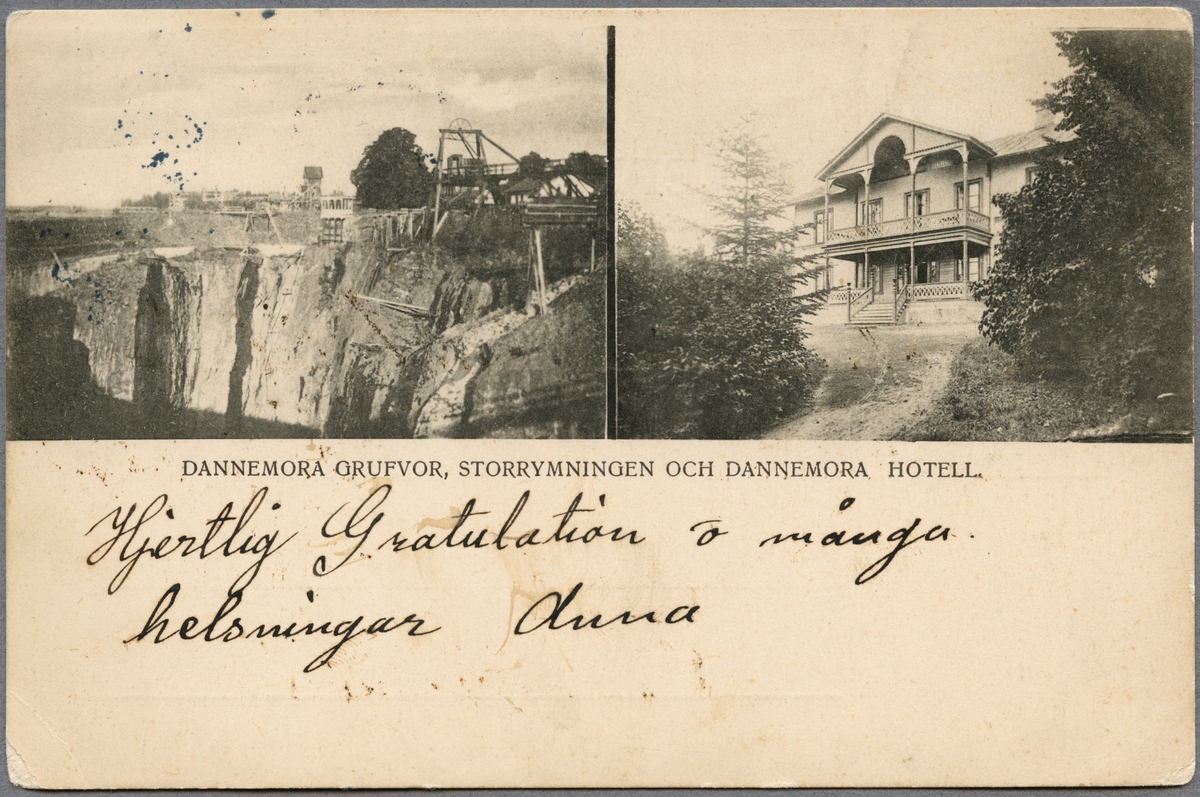 DANNEMORA GRUFVOR, STORRYMNINGEN OCH DANNEMORA HOTELL.
Hjertlig Gratulation o många.
helsningar Anna